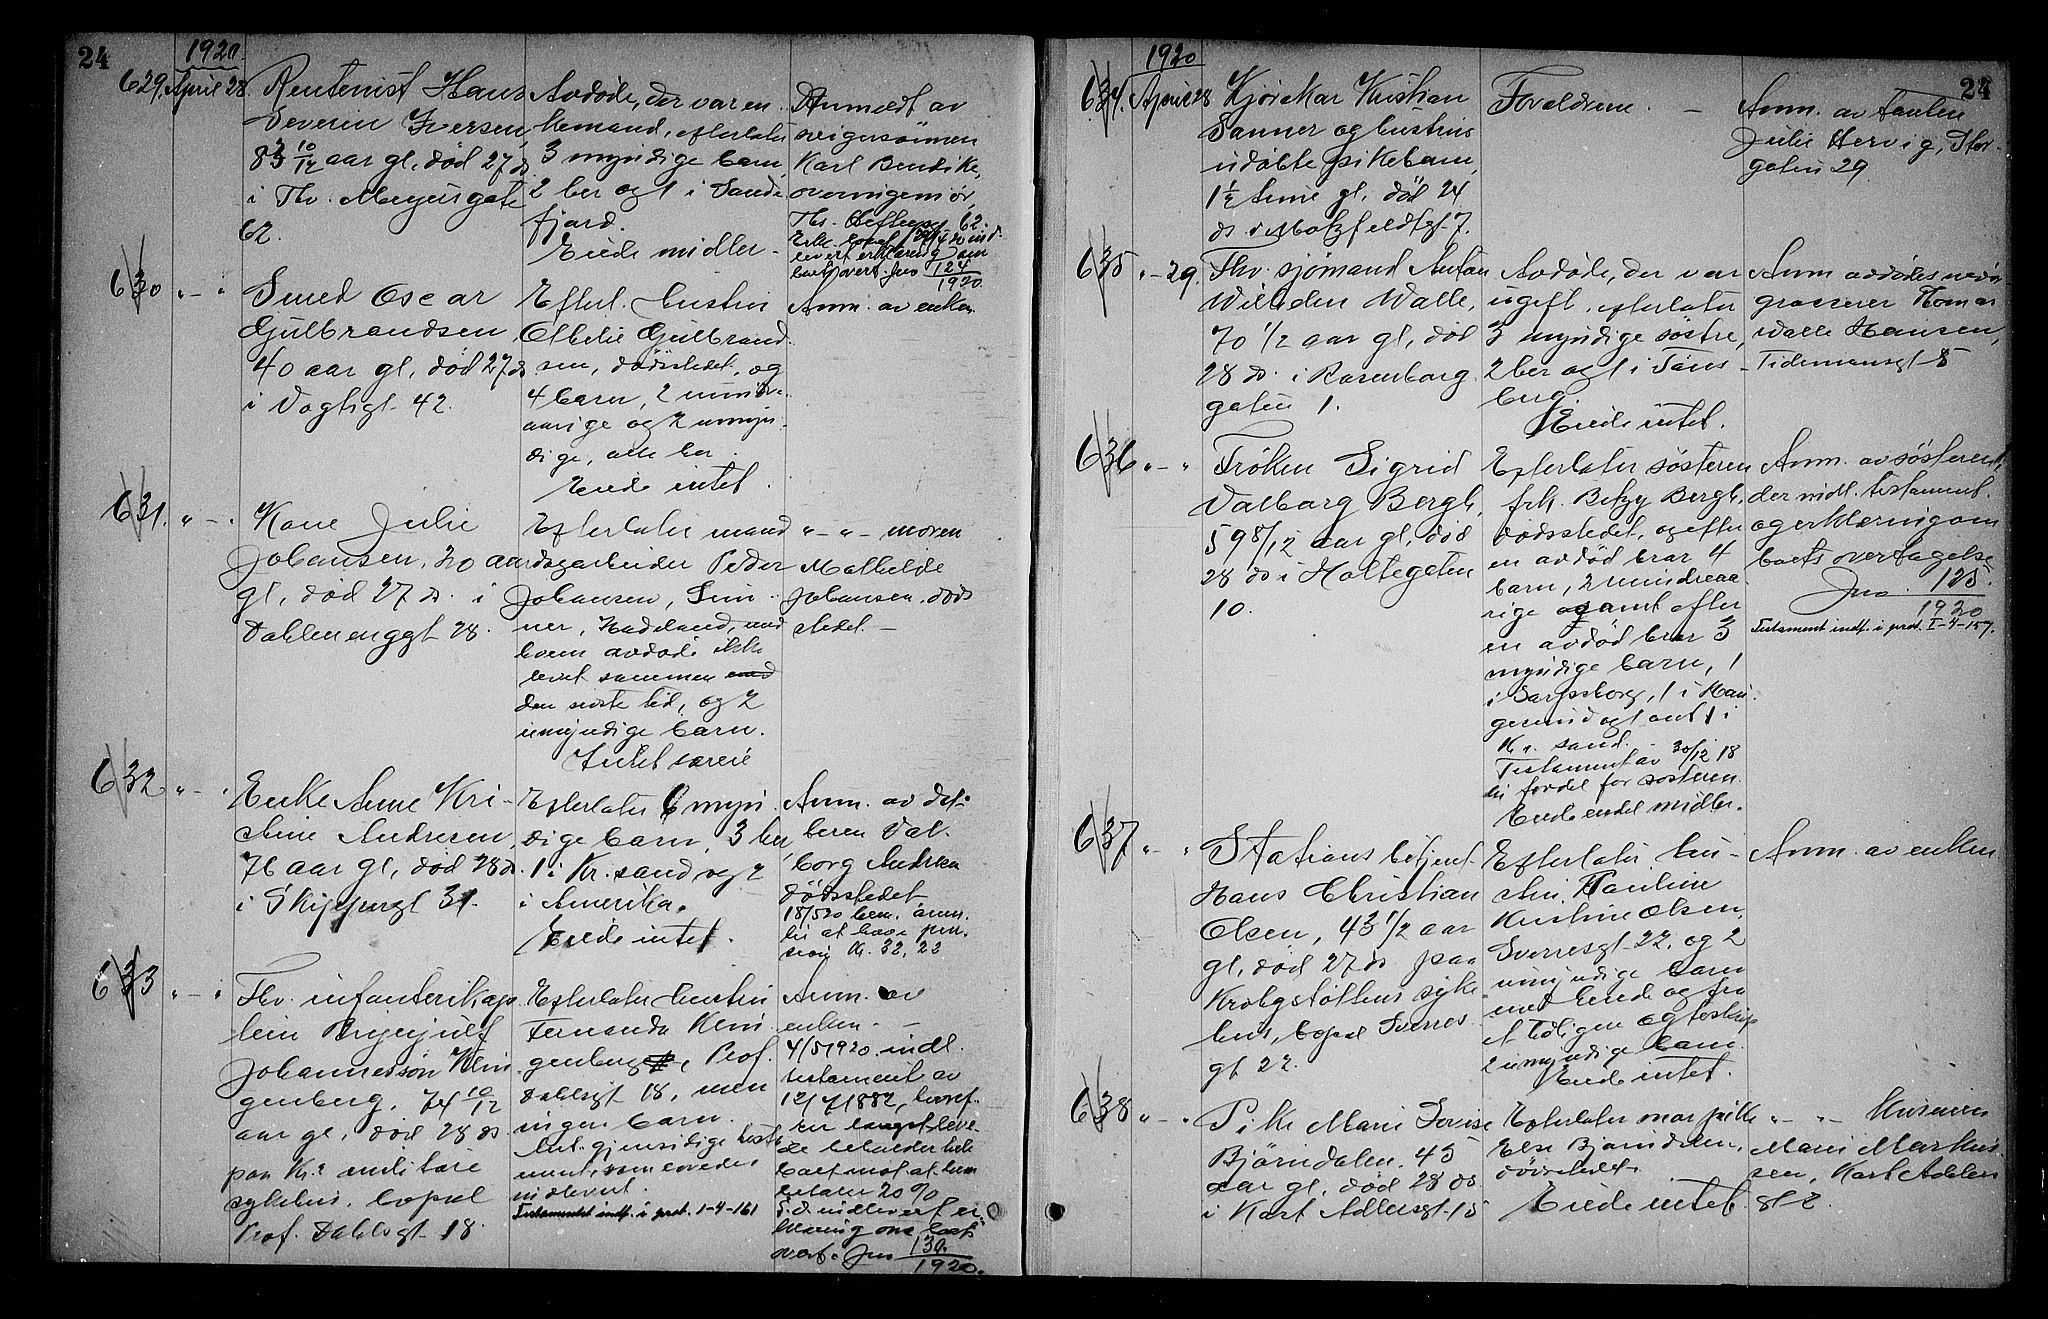 24
1920.
629. April 28
Rentenist Hans
Severin Iversen,
83 10/12 aar gl. død 27 ds.
i Thv. Meyersgate
62.
Avdøde, der var en-
kemand, efterlater
3 myndige barn,
2 her og 1 i Sande-
fjord.
Eiede midler.
Anmeldt av
svigersønnen
Karl Bendike,
overingeniør,
Th. 62.
levert erklæring om
boets overt. Jno 124/1920
630 " - "
Smed Oscar
Gulbrandsen,
40 aar gl., død 27 ds
i Vogtsgt. 42.
Efterl. hustru
Othelie Gulbrand-
sen, dødsstedet, og
4 barn, 2 mindre-
aarige og 2 umyn-
dige, alle her.
Eiede intet.
Anm. av enken
631. " - "
Kone Julie
Johansen, 20 aar
gl., død 27 ds. i
Dahlenenggt. 28.
Efterlater mand
gaardsarbeider Peder
Johansen,
Hadeland, med
hvem avdøde ikke
levet sammen med
den siste tid, og 2
umyndige barn.
Intet særeie
" - " - moren
Mathilde
Johansen, døds
stedet. -
632 " - "
Enke Anne Kri-
stine Andresen,
76 aar gl., død 28 ds.
i Skippergt 31.
Efterlater 6 myn-
dige barn, 3 her,
1 i Kr.sand og 2
i Amerika.
Eiede intet.
Anm. av dat-
teren Val-
borg Andresen
dødsstedet
18/5 20 bem. anm.
til at have pen-
sion Kr. 32,23
633 " - "
Fhv. infanterikap-
tein Brynjulf
Johannessøn Klin-
genberg, 74 10/12
aar gl., død 28 ds
paa Kr.a militære
sykehus, bopæl
Prof. Dahlsgt. 18.
Efterlater hustru
Fernanda Klin-
genberg, Prof.
Dahlsgt 18, men
ingen barn.
Ant. gjensidige testa-
ment, som loves
indlevert.
Testamentet indf. i prot. 1-4-161
Anm. av
enken. -
4/5 1920 indl.
testament av
12/7 1882, hvoref-
ter længstleve-
de beholder hele
boet mot at
betale 20 %
S.d. indlevert er-
klæring om boets
overt. Jno 130/1920.
24
1920
634. April 28
Kjørekar Kristian
Sanner og hustrus
udøbte pikebarn,
1 1/2 time gl. død 24
ds i Motzfeldtgt. 7.
Forældrene. -
Anm. av tanten
Julie Hervig, Stor-
gaten 29
635 " - 29.
Fhv. sjømand Anton
Wilhelm Walle,
70 1/2 aar gl., død
28 ds. i Rosenborg-
gaten 1.
Avdøde, der var
ugift, efterlater
3 myndige søstre,
2 her og 1 i Tøns-
berg
Eiede intet.
Anm avdødes nevø
grosserer Tomar
Walle Hansen,
Tidemansgt 8
636 " - "
Frøken Sigrid
Valborg Bergh,
59 8/12 aar gl., død
28 ds i Holtegaten
10.
Efterlater søsteren
frk. Betzy Bergh,
dødsstedet, og efter
en avdød bror 4
barn, 2 mindreaa-
rige og samt efter
en avdød bror 3
myndige barn, 1
i Sarpsborg, 1 i Kon-
gervind og 1 ant. i
Kr. sand. -
Testament av 30/12 18
til fordel for søsteren.
Eiede endel midler.
Anm. av søsteren,
der indl. testament
og erklæring om
boets overtagelse
Jno. 125./1920
Testament indf. i prot. I-4-157.
637 " - "
Stationsbetjent
Hans Christian
Olsen, 43 1/2 aar
gl., død 27 ds. paa
Krohgstøttens syke
hus, bopæl Sverres-
gt 22.
Efterlater hu-
stru Pauline
Kristine Olsen,
Sverresgt 22. og 2
umyndige barn
med herede og fra
et tidligere egteskap
2 umyndige barn.
Eiede intet.
Anm. av enken
638 " - "
Pike Marie Lovise
Bjørndalen, 45
aar gl., død 28 ds
i Kort Adlersgt 15
Efterlater mor pike
Else Bjørndalen,
dødsstedet.
Eiede intet.
" - " - kusinen
Marie Markus-
sen, Kort Adelers
gt 2.